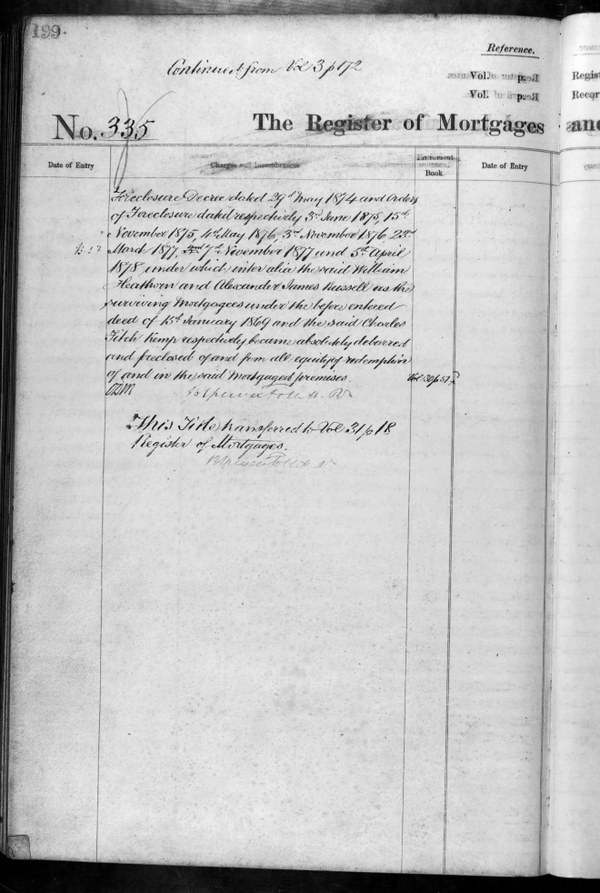 199
Reference.
Continued from Vol 3 p 172
Vol. p.
Vol. p.
No. 335
The Register of Mortgages and
Date of Entry
Charges and Incumbrances
Book
Date of Entry
Regist
Recor
Foreclosure Decree dated 29th May 1874 and Orders
of Foreclosure dated respectively 3rd June 1875, 15th
November 1875, 4th May 1876, 3rd November 1876 23rd
March 1877, 7th November 1877 and 5th April
1878 under which inter alia the said William
Heathorn and Alexander James Russell as the
surviving Mortgagees under the before entered
deed of 15th January 1869 and the said Charles
Fitch Kemp respectively became absolutely debarred
and foreclosed of and from all equity of redemption
of and in the said Mortgaged premises.
Vol 30 p 51
This Title transferred to Vol 31 p 18
Register of Mortgages.